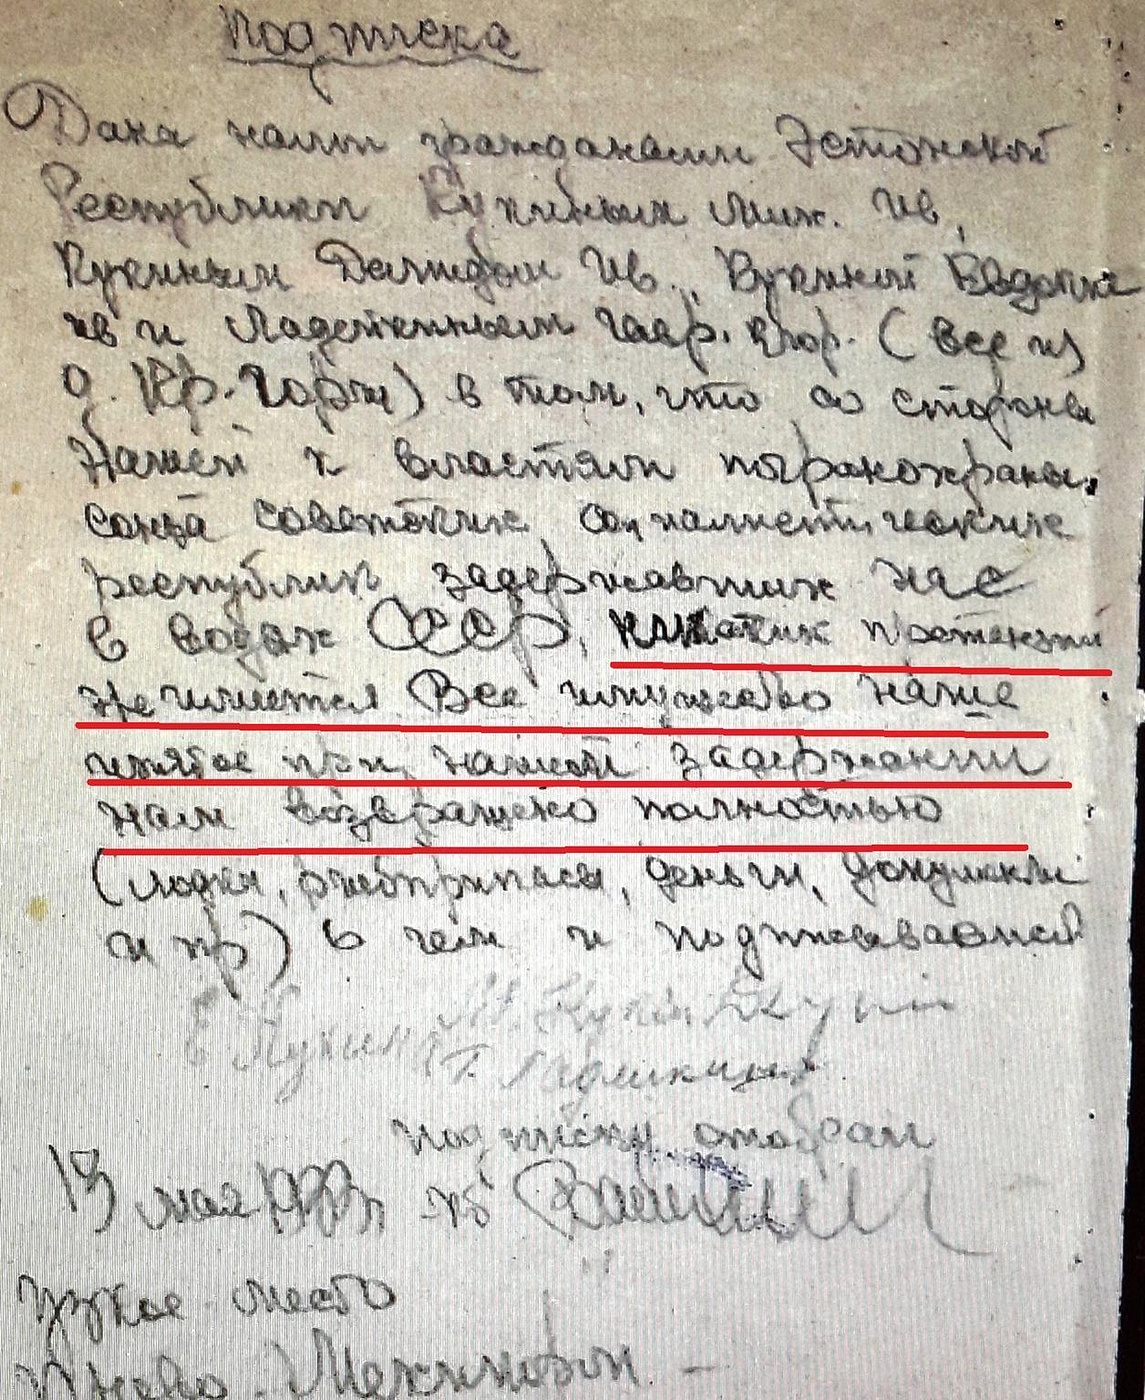 Подписка
Дана нами гражданами Эстонской
Республики Кукиным Мих. Ив,
Кукиным Давидом Ив., Кукиной Евдокие
ив и Гавр. Егор. (все из
д. Кр. Горы) в том, что со стороны
Нашей к властям погранохраны
союза советских социалистических
республик задержавших нас
в водах СССР, никаких претензий
не имеется Все имущество наше
изятое при нашей задержании
нам возвращено полностью
(лодки, рыбприпасы, деньги, документы
и пр) в чем и подписываемся
Е Кукина М. Кукин Д Кукин
Г.
подписку отобрал
19 мая
Узкое место